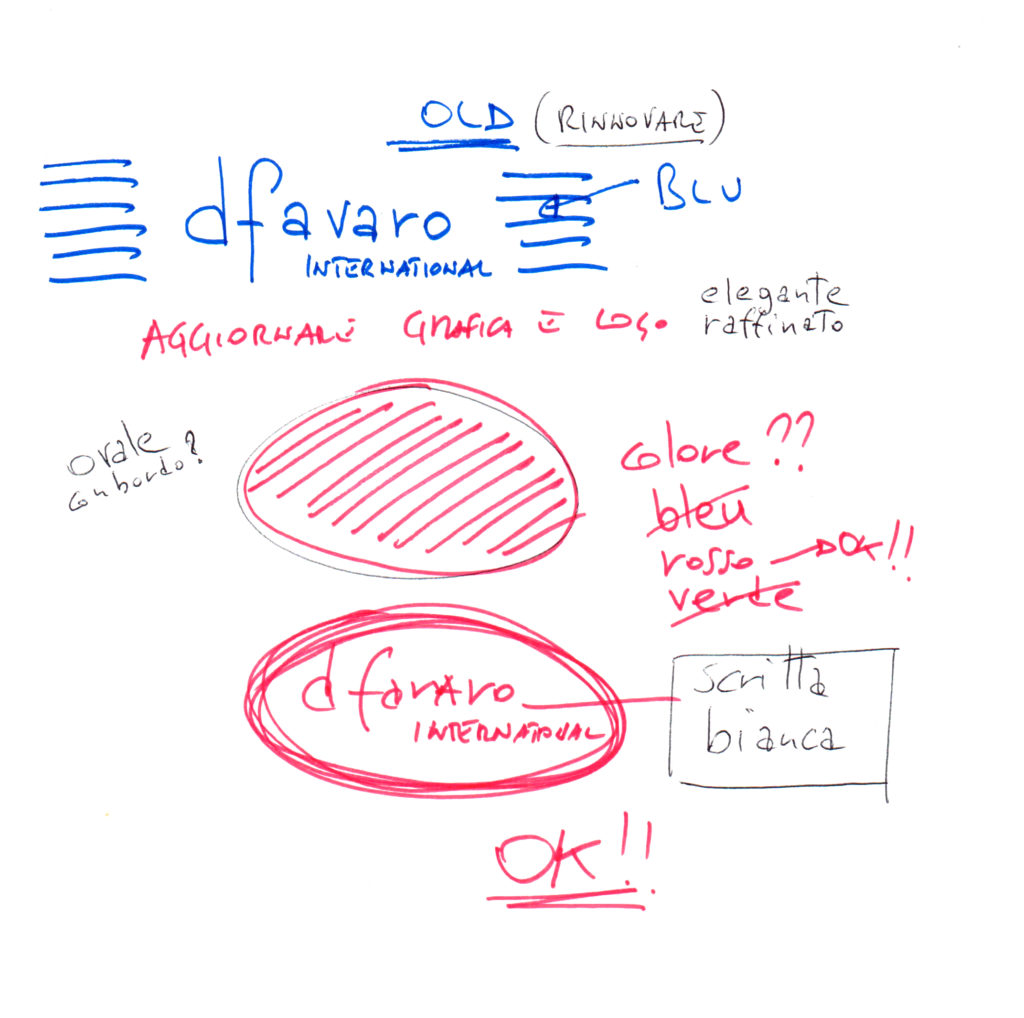 OLD (RINNOVARE)
dfavaro
INTERNATIONAL
BLU
AGGIORNARE GRAFICA E LOGO
elegante
raffinato
ovale
con bordo?
colore ??
bleu
rosso → OK!!
verde
dfavaro
INTERNATIONAL
scritta
bianca
OK!!